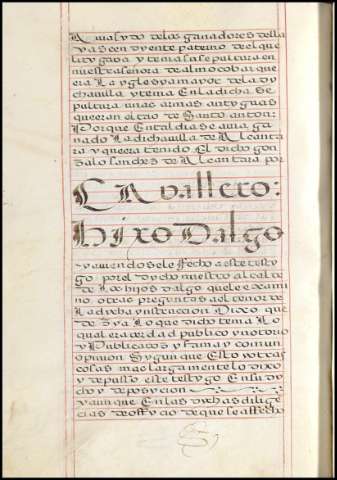 A mas y do delos ganadores della
y as cendyente pateino del que
litygava y tenia su sepultura en
nuestra señora de almocobar que
era la yglesya mayor de la dy
cha villa y tenia En la dicha se
pultura unas armas antyguas
que eran el tao de santo anton:
Porque En tal dia se avia ga
nado La dicha villa de Alcanta
ra y que era tenido El dicho gon
zalo sanches de Alcantara por
CAvallero:
hixoDalgo
y aviendosele Fecho a este testy
go por el dycho nuestro alcalde
de Los hijos dalgo que le examino
otras preguntas a el tenor de
La dycha ynstencion Dixo que
dezya Lo que dicho tenia Lo
qual era verdad publico y notorio
y Publica boz y Fama y comun
opinion Sygun que Esto y otras
cosas mas largamente lo dixo
y depusso este testygo En su dy
cho y deposycion
y aunque En las dychas dilige
cias de offycio de que se a ffecho